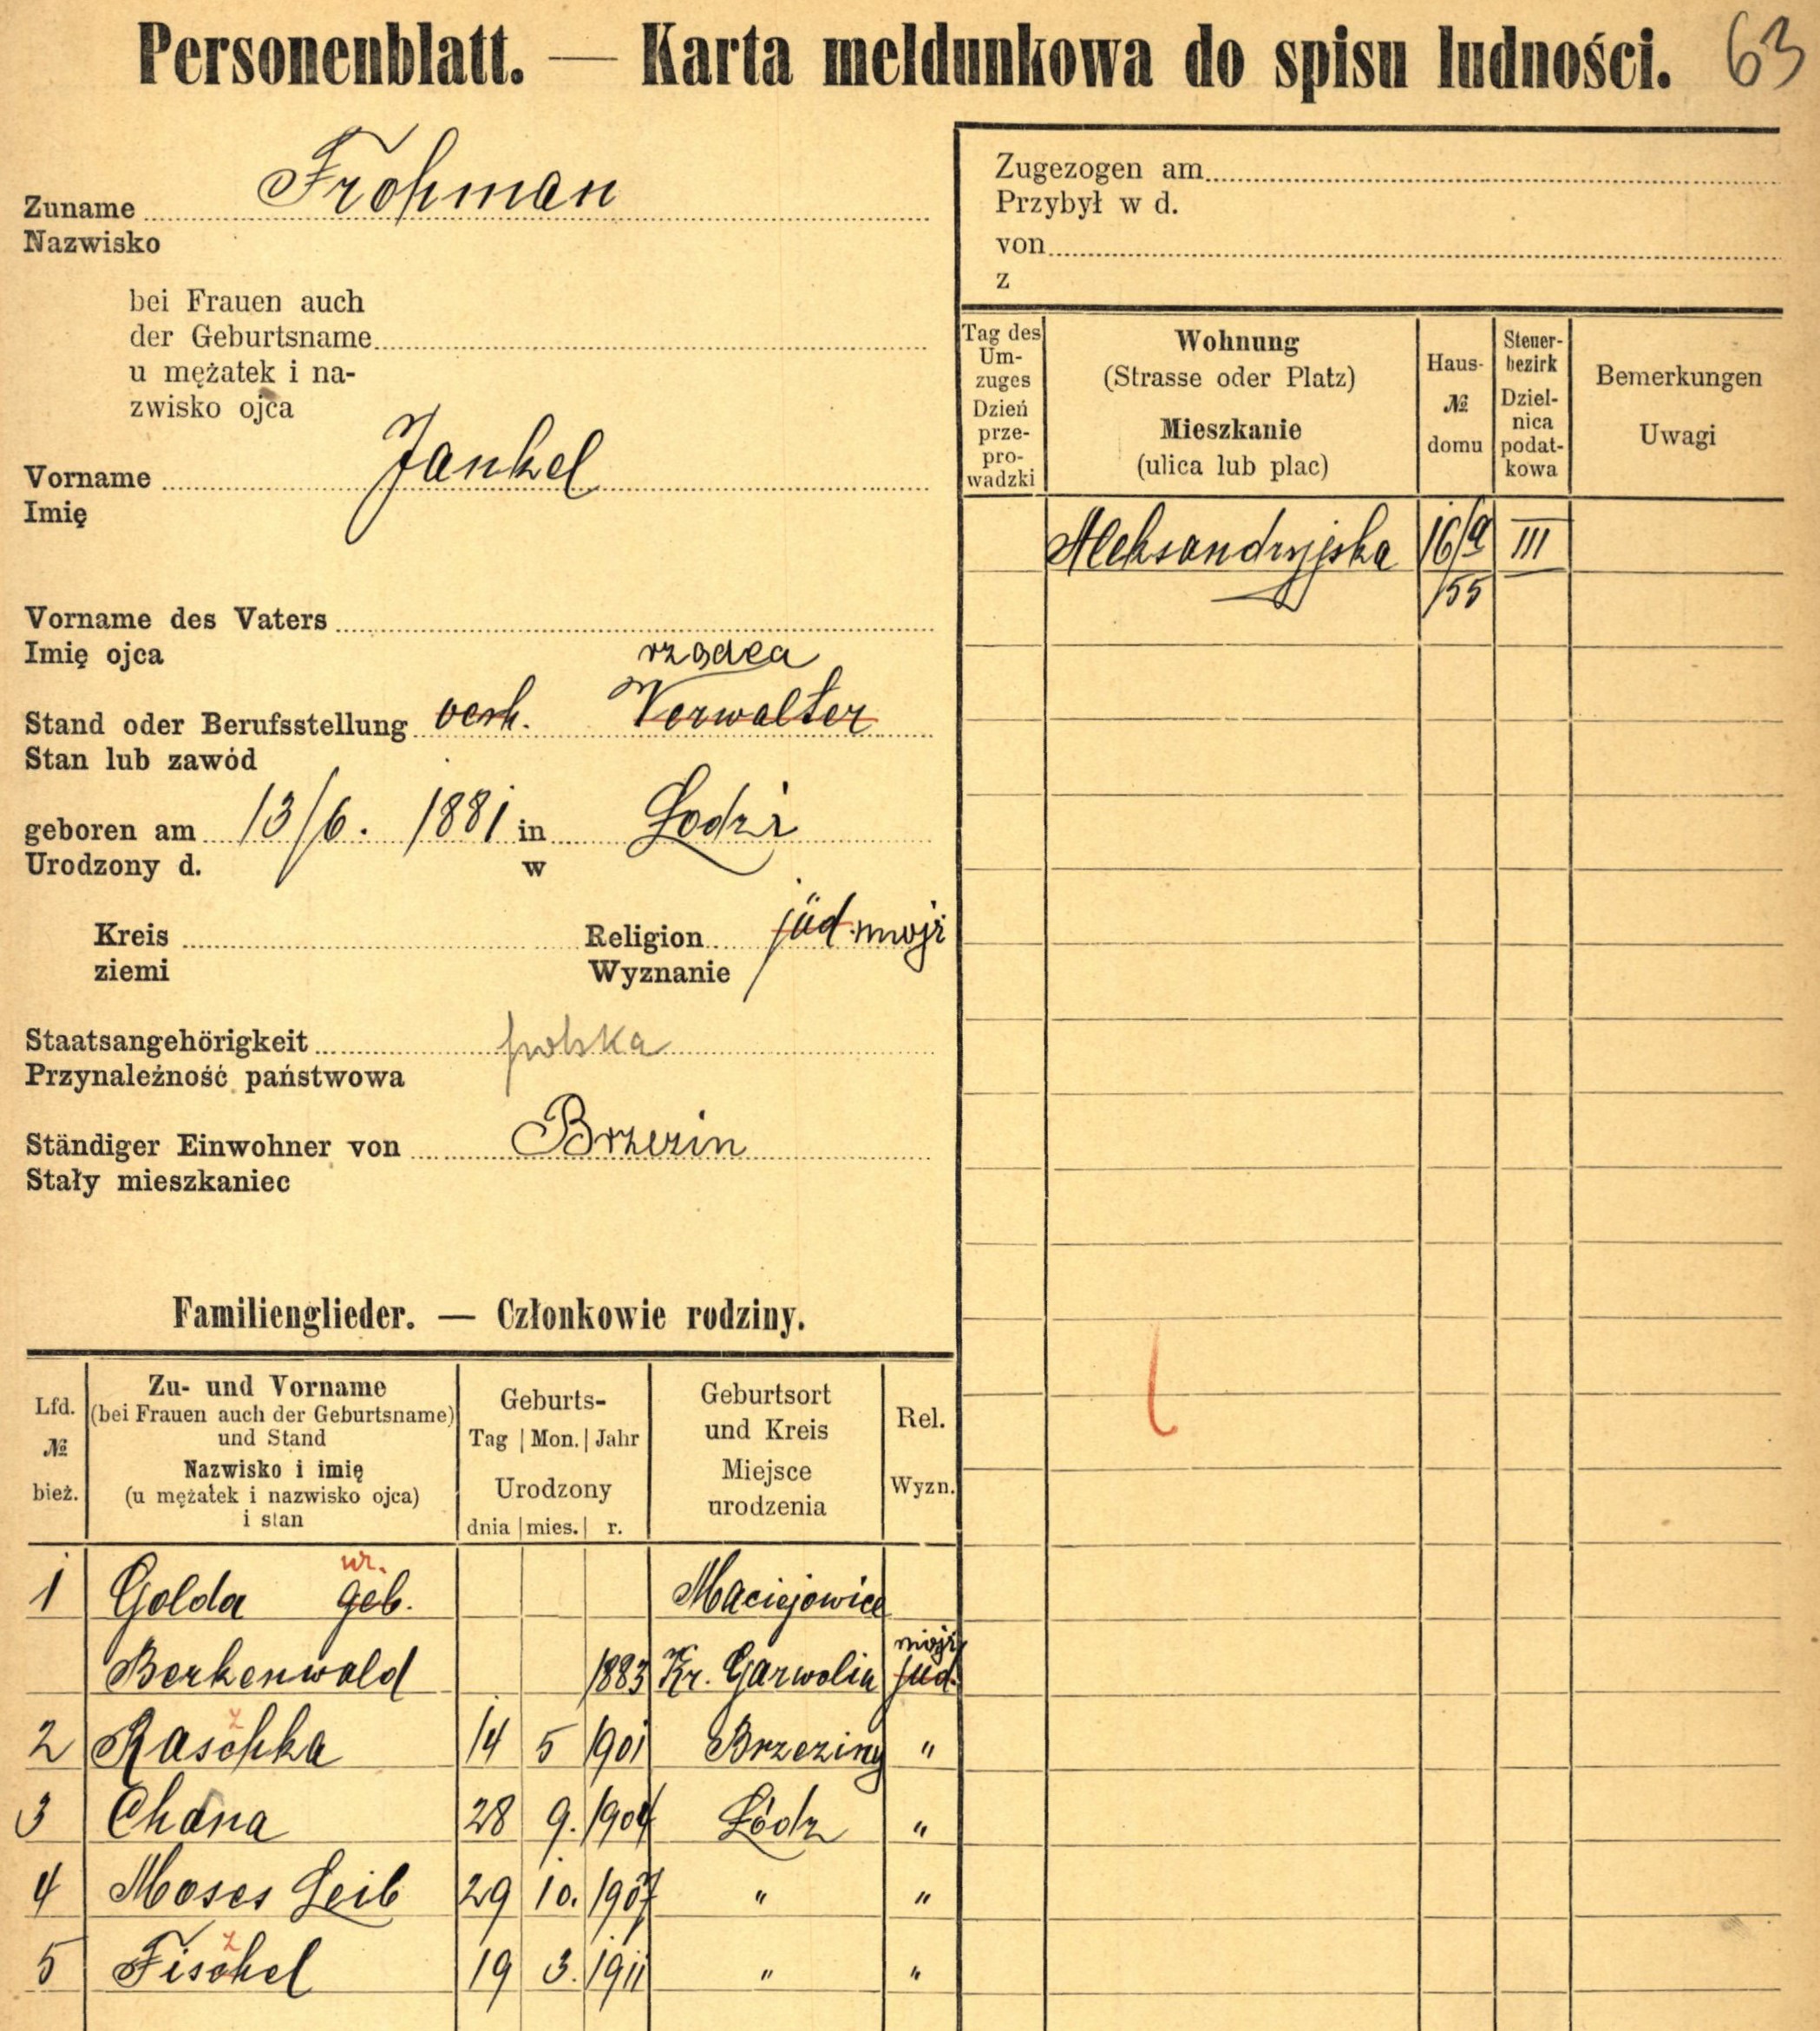 Personenblatt. — Karta meldunkowa do spisu ludności. 63
Zuname Frohman
Nazwisko
bei Frauen auch
der Geburtsname
u mężatek i na-
zwisko ojca
Vorname Jankel
Imię
Vorname des Vaters
Imię ojca
rządca
Stand oder Berufsstellung verh. Verwalter
Stan lub zawód
geboren am 13/6. 1881 in Łodzi
Urodzony d. w
Kreis Religion jüd. mojż
ziemi Wyznanie
Staatsangehörigkeit polska
Przynależność państwowa
Ständiger Einwohner von Brzezin
Stały mieszkaniec
Zugezogen am
Przybył w d.
von
z
Tag des
Um-
zuges
Dzień
prze-
pro-
wadzki
Wohnung
(Strasse oder Platz)
Mieszkanie
(ulica lub plac)
Haus-
№
domu
Steuer-
bezirk
Dziel-
nica
podat-
kowa
Bemerkungen
Uwagi
Aleksandryjska 16/a III
155
Familienglieder. — Członkowie rodziny.
Lfd.
№
bież.
Zu- und Vorname
(bei Frauen auch der Geburtsname)
und Stand
Nazwisko i imię
(u mężatek i nazwisko ojca)
i stan
Geburts-
Tag | Mon. | Jahr
Urodzony
dnia | mies. | r.
Geburtsort
und Kreis
Miejsce
urodzenia
Rel.
Wyzn.
ur.
1 Golda geb. Maciejowice
mojż
Berkenwald 1883 Kr. Garwolin jüd.
2 Raschka 14 5 1901 Brzeziny "
3 Chana 28 9. 1904 Łódz "
4 Moses Leib 29 10. 1907 " "
5 Fischel 19 3. 1911 " "